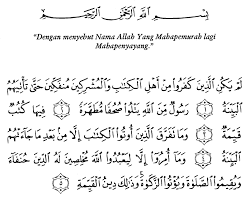 بِسْمِ اللَّهِ الرَّحْمَٰنِ الرَّحِيمِ
"Dengan menyebut Nama Allah Yang Mahapemurah lagi
Mahapenyayang."
لَمْ يَكُنِ الَّذِينَ كَفَرُوا مِنْ أَهْلِ الْكِتَابِ وَالْمُشْرِكِينَ مُنفَكِّينَ حَتَّىٰ تَأْتِيَهُمُ
الْبَيِّنَةُ ﴿١﴾ رَسُولٌ مِّنَ اللَّهِ يَتْلُو صُحُفًا مُّطَهَّرَةً ﴿٢﴾ فِيهَا كُتُبٌ
قَيِّمَةٌ ﴿٣﴾ وَمَا تَفَرَّقَ الَّذِينَ أُوتُوا الْكِتَابَ إِلَّا مِن بَعْدِ مَا جَاءَتْهُمُ
الْبَيِّنَةُ ﴿٤﴾ وَمَا أُمِرُوا إِلَّا لِيَعْبُدُوا اللَّهَ مُخْلِصِينَ لَهُ الدِّينَ حُنَفَاءَ
وَيُقِيمُوا الصَّلَوٰةَ وَيُؤْتُوا الزَّكَوٰةَ وَذَٰلِكَ دِينُ الْقَيِّمَةِ ﴿٥﴾